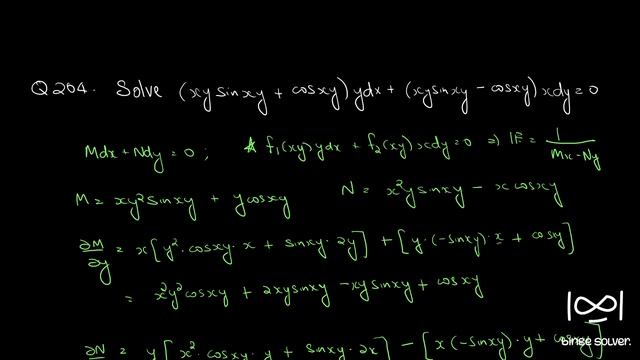 Q204. Solve (xy sinxy + cosxy) ydx + (xysinxy - cosxy) xdy = 0
Mdx + Ndy = 0 ; f₁(xy) ydx + f₂(xy) xdy = 0 ⇒ IF = 1/(Mx - Ny)
M = xy²sinxy + ycosxy N = x²ysinxy - xcosxy
∂M/∂y = x[y². cosxy. x + sinxy. 2y] + [y. (-sinxy). x + cosxy]
= x²y²cosxy + 2xysinxy - xysinxy + cosxy
∂N = y[x². cosxy. y + sinxy. 2x] - [x(-sinxy). y + cosxy]
binge solver.